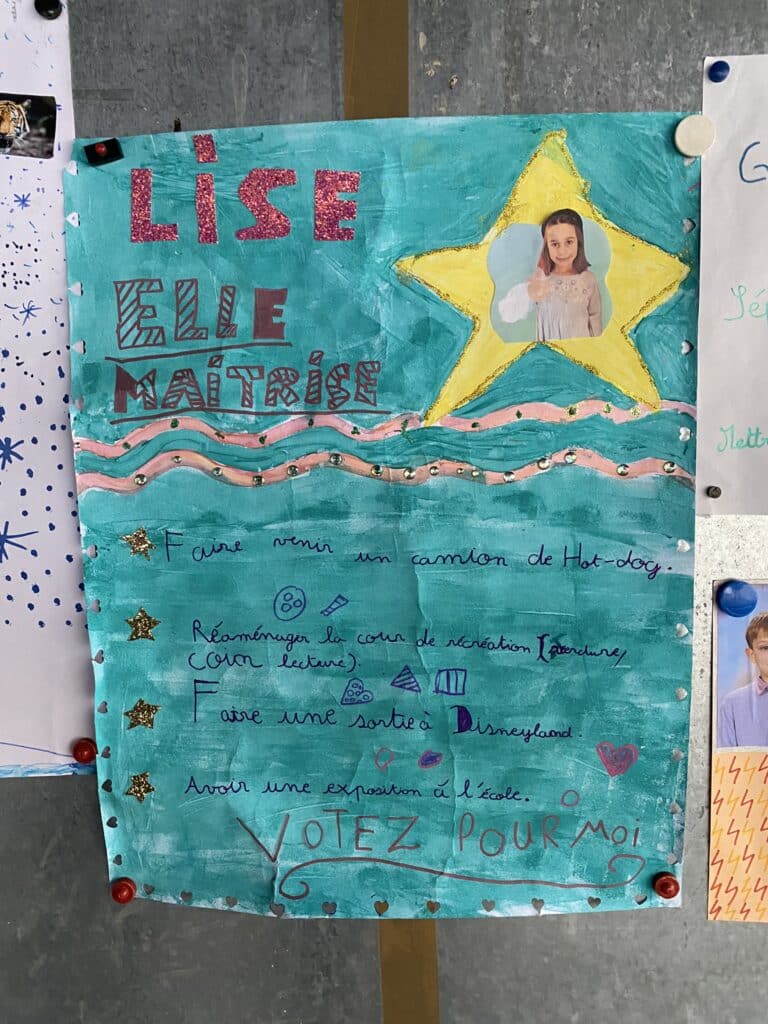 LiSE
ELLE
MAÎTRISE
Faire venir un camion de Hot-dog.
Réaménager la cour de récréation (verdure,
coin lecture).
Faire une sortie à Disneyland.
Avoir une exposition à l'école.
VOTEZ POUR MOi
G
Sép
Mettr